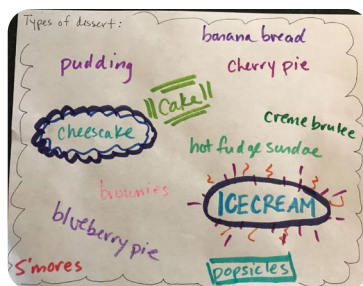 Types of dessert:
banana bread
pudding
cherry pie
cake
creme brulee
cheescake
hot fudge sundae
brownies
ICECREAM
blueberry pie
S'mores
popsicles